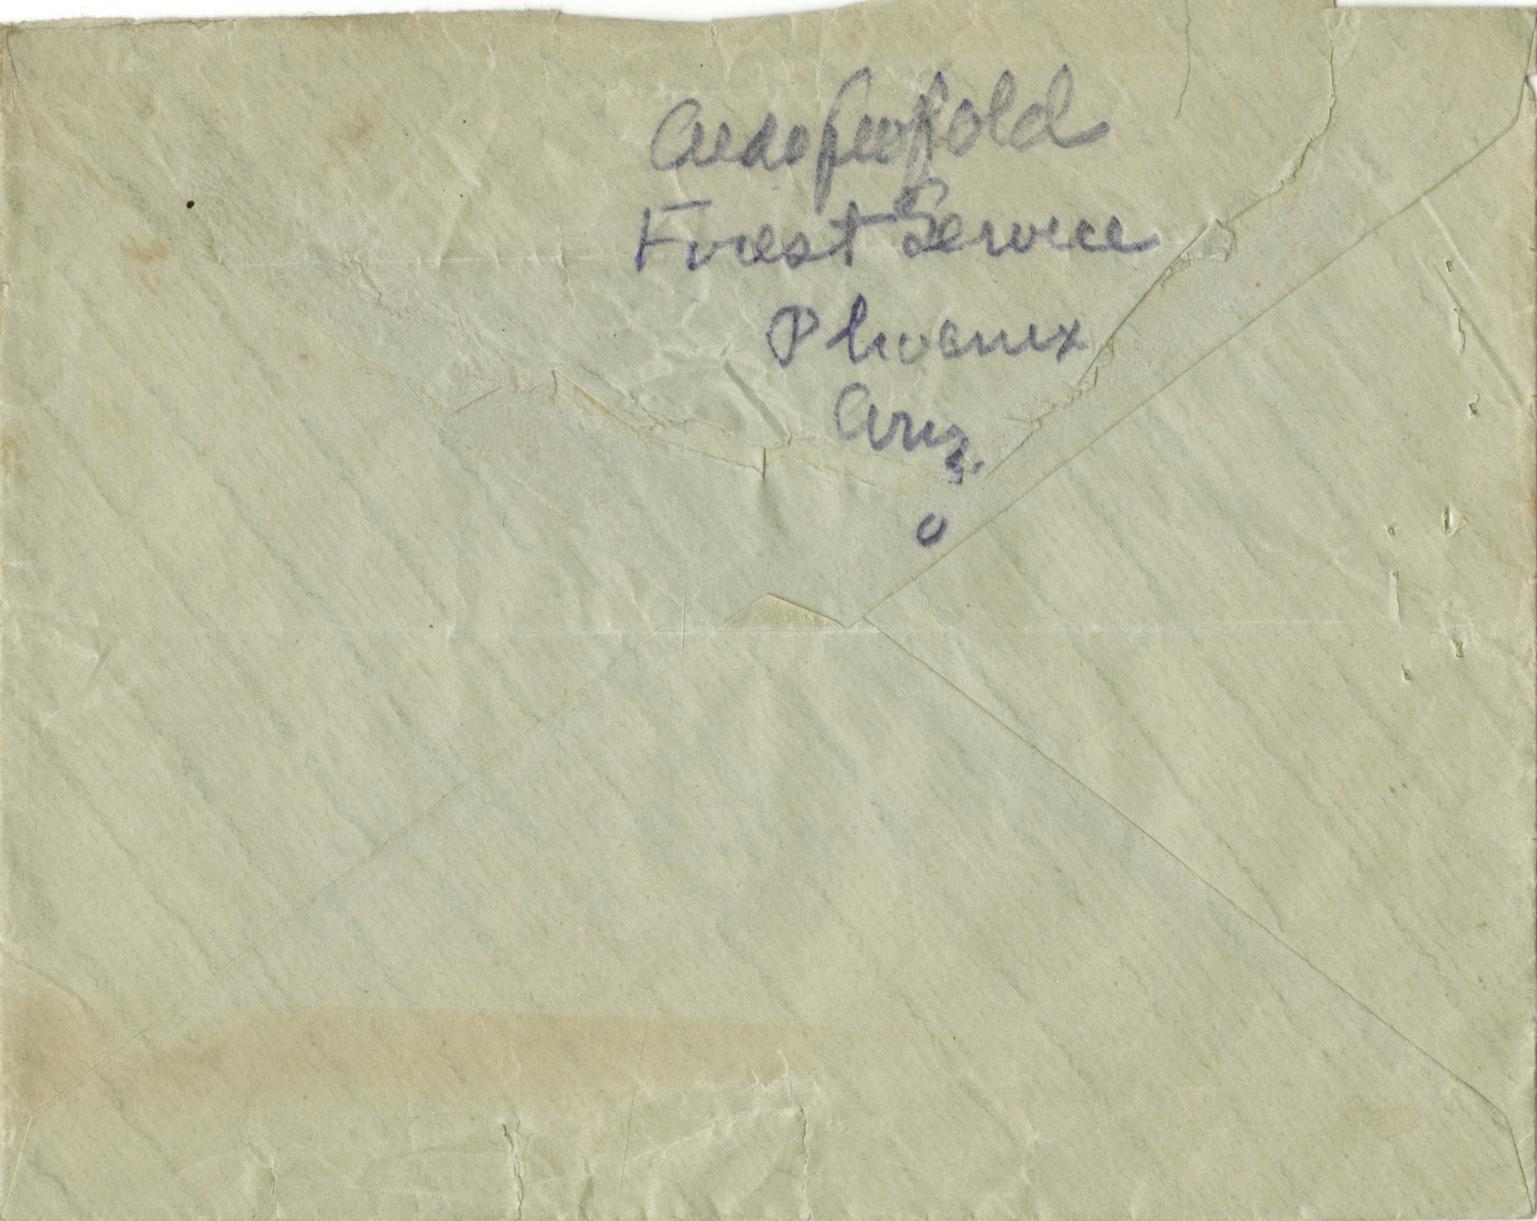 Aldo Leopold
Forest Service
Phoenix
Ariz.